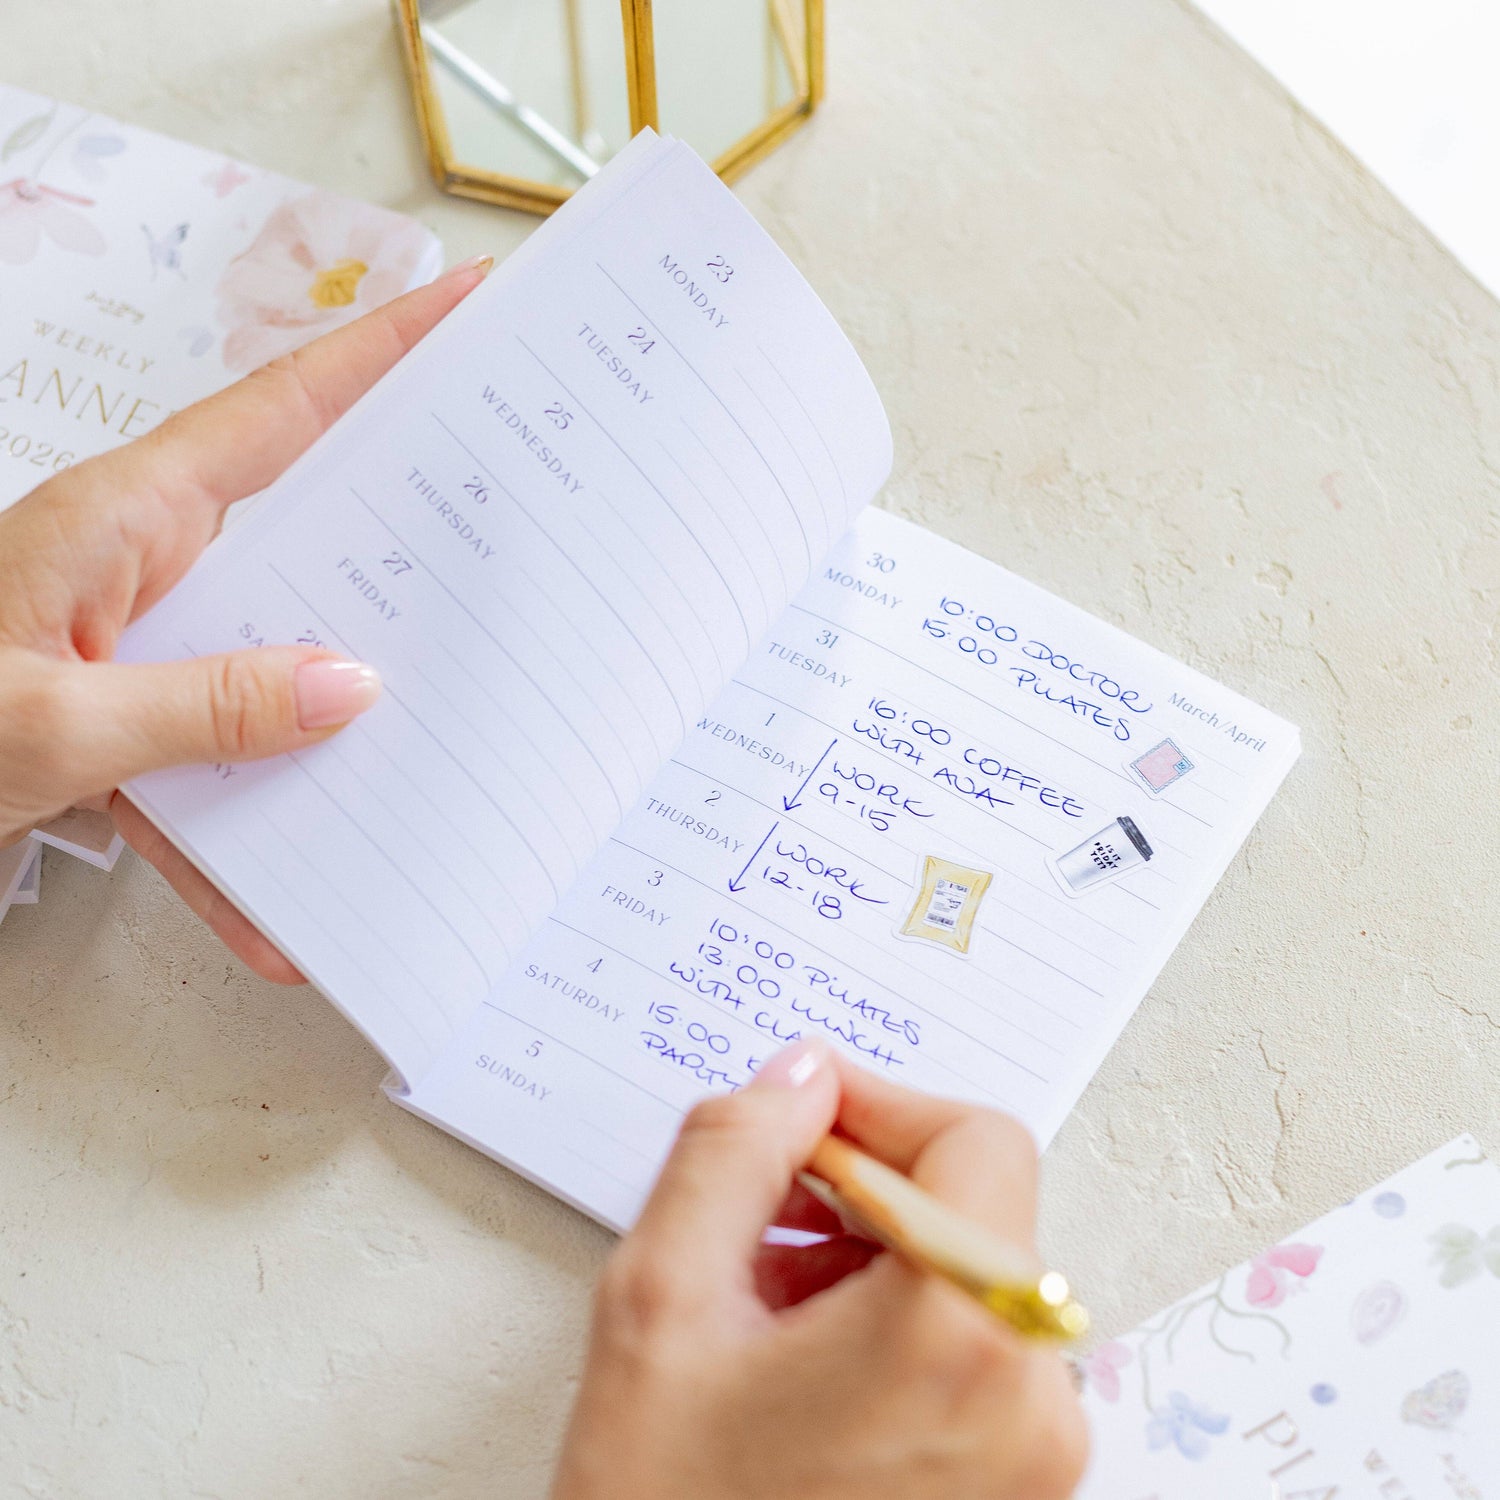 WEEKLY
2026
23
MONDAY
24
TUESDAY
25
WEDNESDAY
26
THURSDAY
27
FRIDAY
March/April
30
MONDAY
10:00 DOCTOR
15:00 PILATES
31
TUESDAY
16:00 COFFEE
WITH AVA
1
WEDNESDAY
WORK
9-15
IS IT
FRIDAY
YET?
2
THURSDAY
WORK
12-18
3
FRIDAY
10:00 PILATES
13:00 LUNCH
WITH
4
SATURDAY
15:00
PARTY
5
SUNDAY